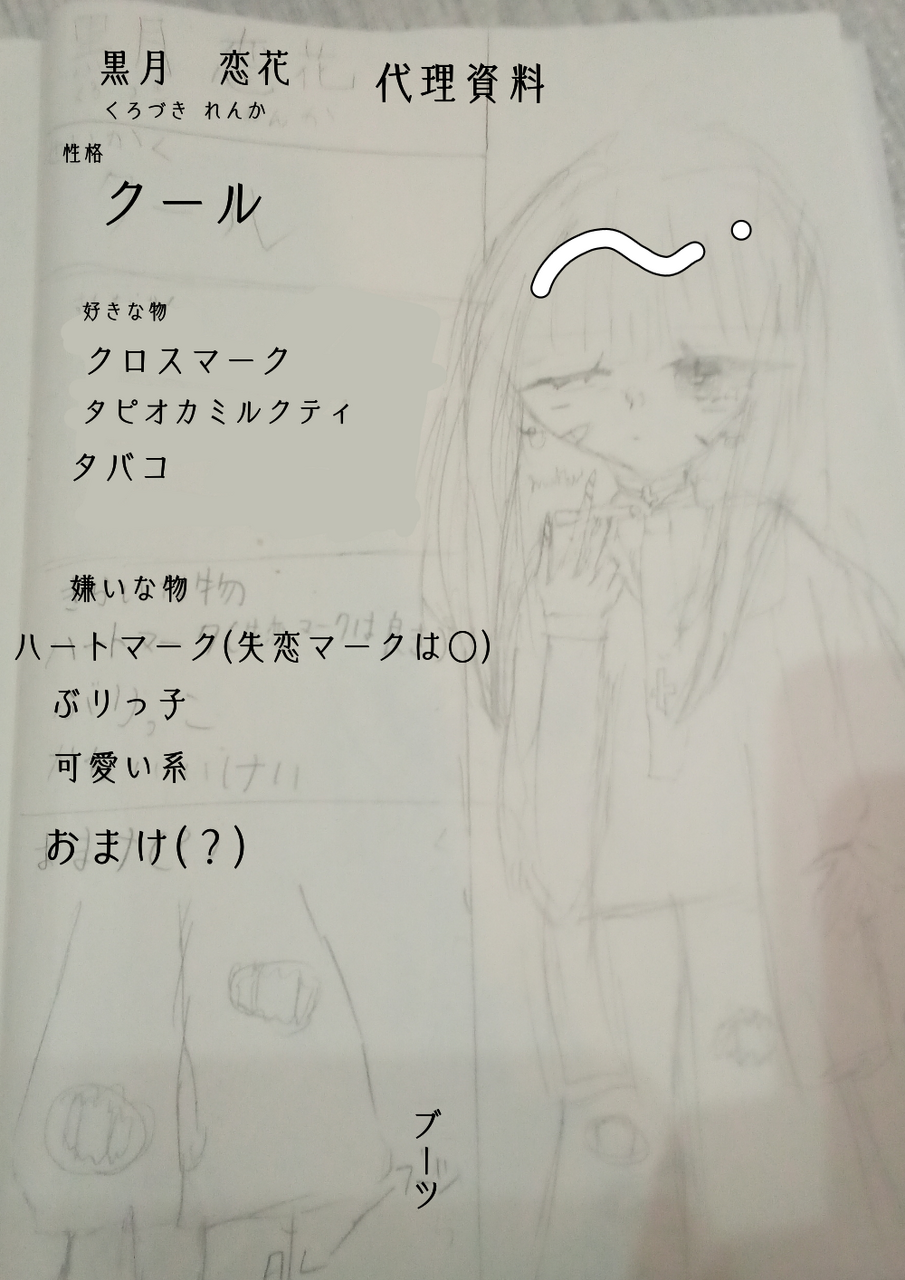 黒月　恋花
くろづき れんか
代理資料
性格
クール
好きな物
クロスマーク
タピオカミルクティ
タバコ
嫌いな物
ハートマーク(失恋マークは〇)
ぶりっ子
可愛い系
おまけ(？)
ブーツ